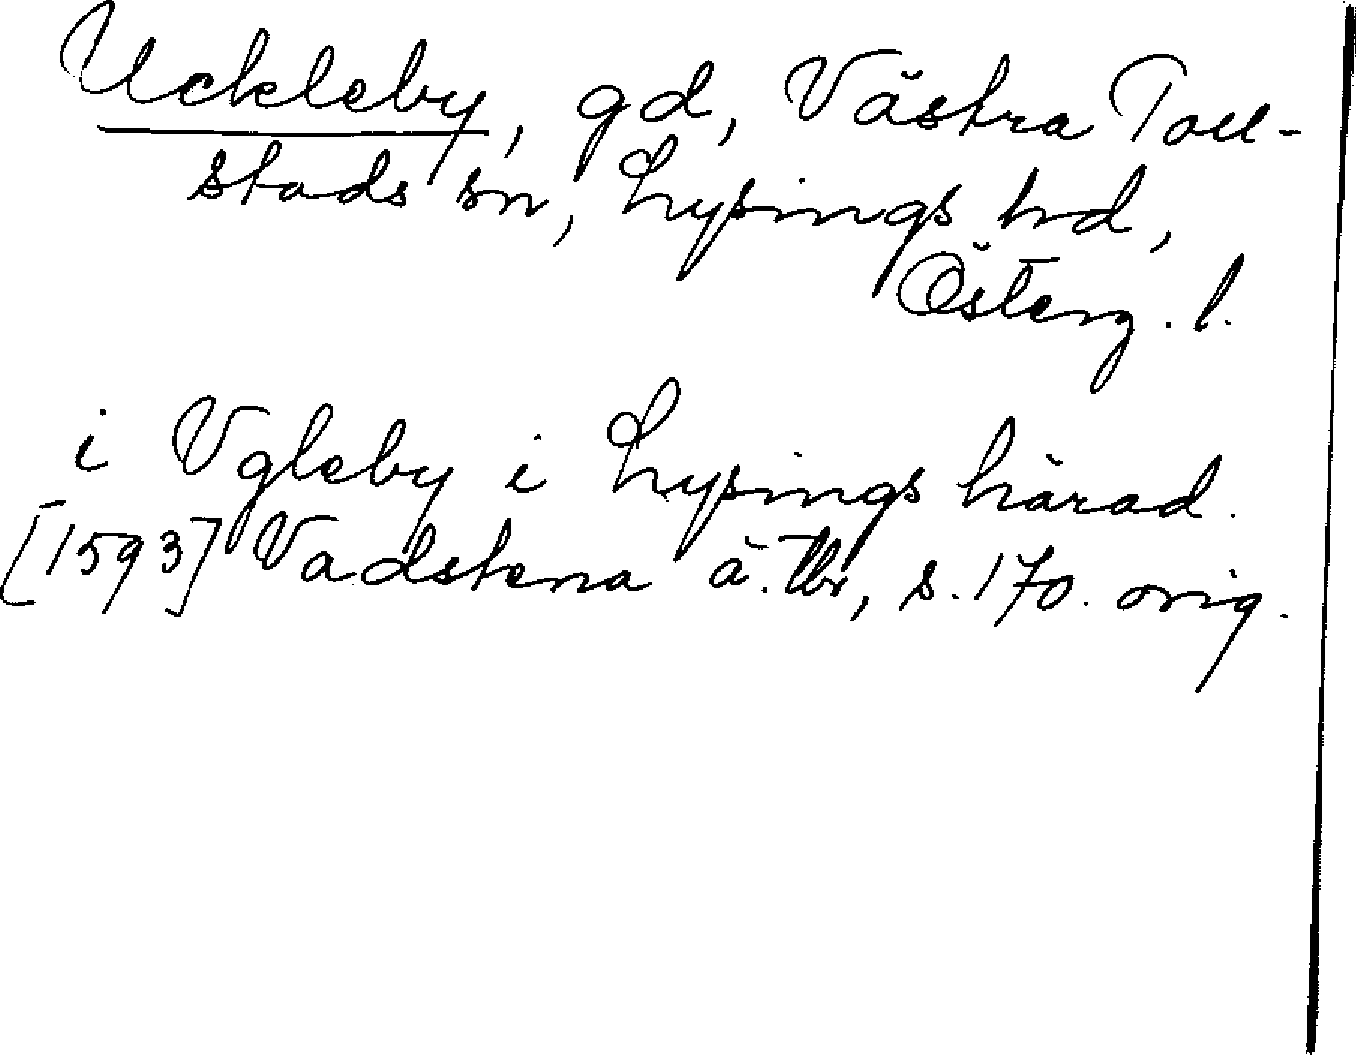 Uckleby, gd, Västra Toll-
stads sn, Lysings hd,
Österg. l.
i Vgleby i Lysings härad.
[1593] Vadstena ä. tb, s. 170. orig.